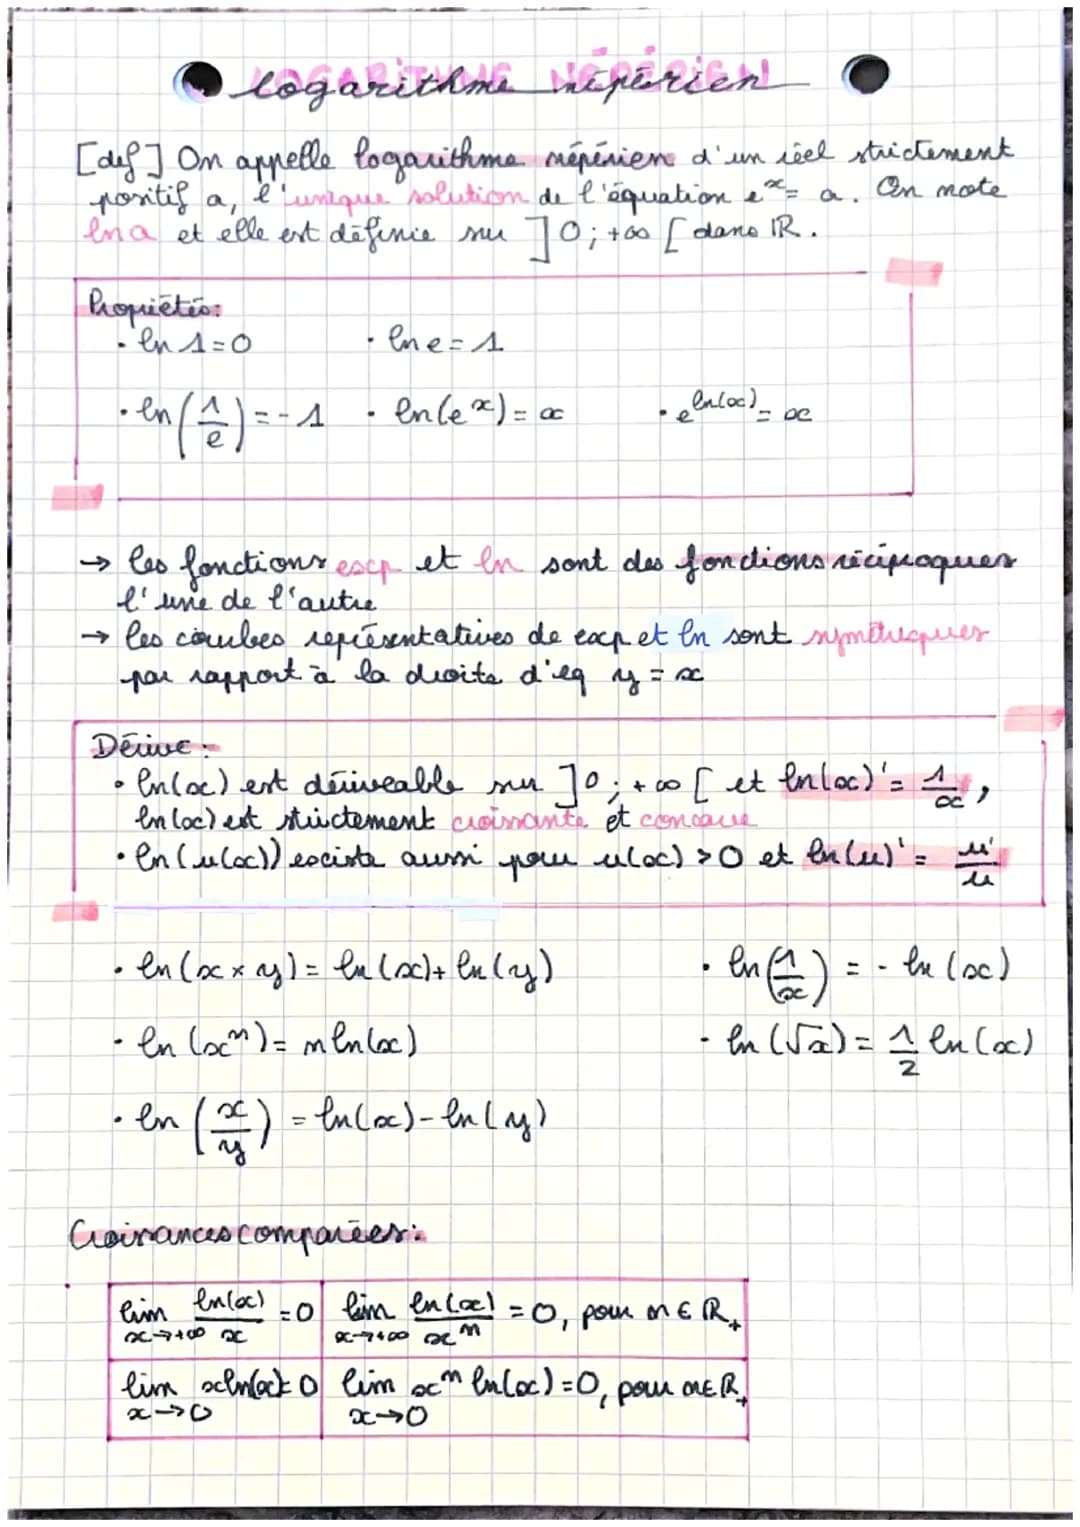 logarithme népérien
[def] On appelle logarithme népérien d'un réel strictement
positif a, l'unique solution de l'équation eˣ = a. On note
ln a et elle est définie sur ]0; +∞[ dans ℝ.
Propriétés:
• ln 1 = 0 • ln e = 1
• ln(1/e) = -1 • ln(eˣ) = x • e^ln(x) = x
→ les fonctions exp et ln sont des fonctions réciproques
l'une de l'autre
→ les courbes représentatives de exp et ln sont symétriques
par rapport à la droite d'eq y = x
Dérivé :
• ln(x) est dériveable sur ]0; +∞[ et ln(x)' = 1/x,
ln(x) est strictement croissante et concave
• ln(u(x)) existe aussi pour u(x) > 0 et ln(u)' = u'/u
• ln(x × y) = ln(x) + ln(y) • ln(1/x) = - ln(x)
• ln(xⁿ) = n ln(x) • ln(√x) = 1/2 ln(x)
• ln(x/y) = ln(x) - ln(y)
Croissances comparées:
lim x→+∞ ln(x)/x = 0 lim x→+∞ ln(x)/xⁿ = 0, pour n ∈ ℝ₊
lim x→0 xln(x) = 0 lim x→0 xⁿ ln(x) = 0, pour n ∈ ℝ₊